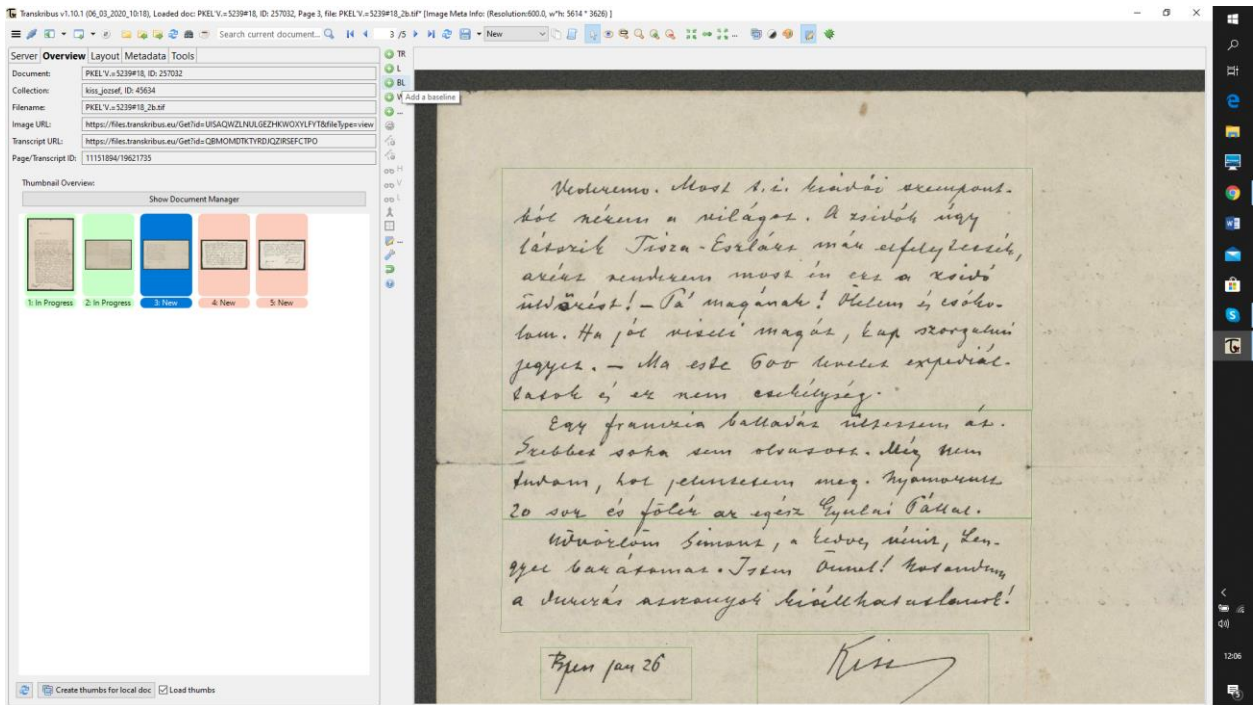 Transkribus v1.10.1 (06_03_2020_10:18), Loaded doc: PKEL'V.=5239#18, ID: 257032, Page 3, file: PKEL'V.=5239#18_2b.tif* [Image Meta Info: (Resolution:600.0, w*h: 5614 * 3626) ]
Search current document... 3 /5 New
Server Overview Layout Metadata Tools
Document: PKEL'V.=5239#18, ID: 257032
Collection: kiss_jozsef, ID: 45634
Filename: PKEL'V.=5239#18_2b.tif
Image URL: https://files.transkribus.eu/Get?id=UISAQWZLNULGEZHKWOXYLFYT&fileType=view
Transcript URL: https://files.transkribus.eu/Get?id=QBMOMDTKTYRDJQZIRSEFCTPO
Page/Transcript ID: 11151894/19621735
Thumbnail Overview:
Show Document Manager
1: In Progress
2: In Progress
3: New
4: New
5: New
Create thumbs for local doc
Load thumbs
TR
L
BL
Add a baseline
H
V
L
Vederemo. Most t. i. kiadói szempont-
ból nézem a világot. A zsidók úgy
látszik Tisza-Eszlárt már elfelejtették,
azért rendezem most én ezt a zsidó
üldözést! – Pá magának! Ölelem és csóko-
lom. Ha jól viseli magát, kap szorgalmi
jegyet. – Ma este 600 levelet expediál-
tatok és ez nem csekélység.
Egy franczia balladát ültettem át.
Szebbet soha sem olvasott. Még nem
tudom, hol jelentetem meg. Nyomorult
20 sor és fölér az egész Gyulai Pállal.
Üdvözlöm Simont, a kedves nénit, Len-
gyel barátomat. Isten Önnel!
a asszonyok kiállhatatlanok!
Bpen jan 26
Kiss
12:06